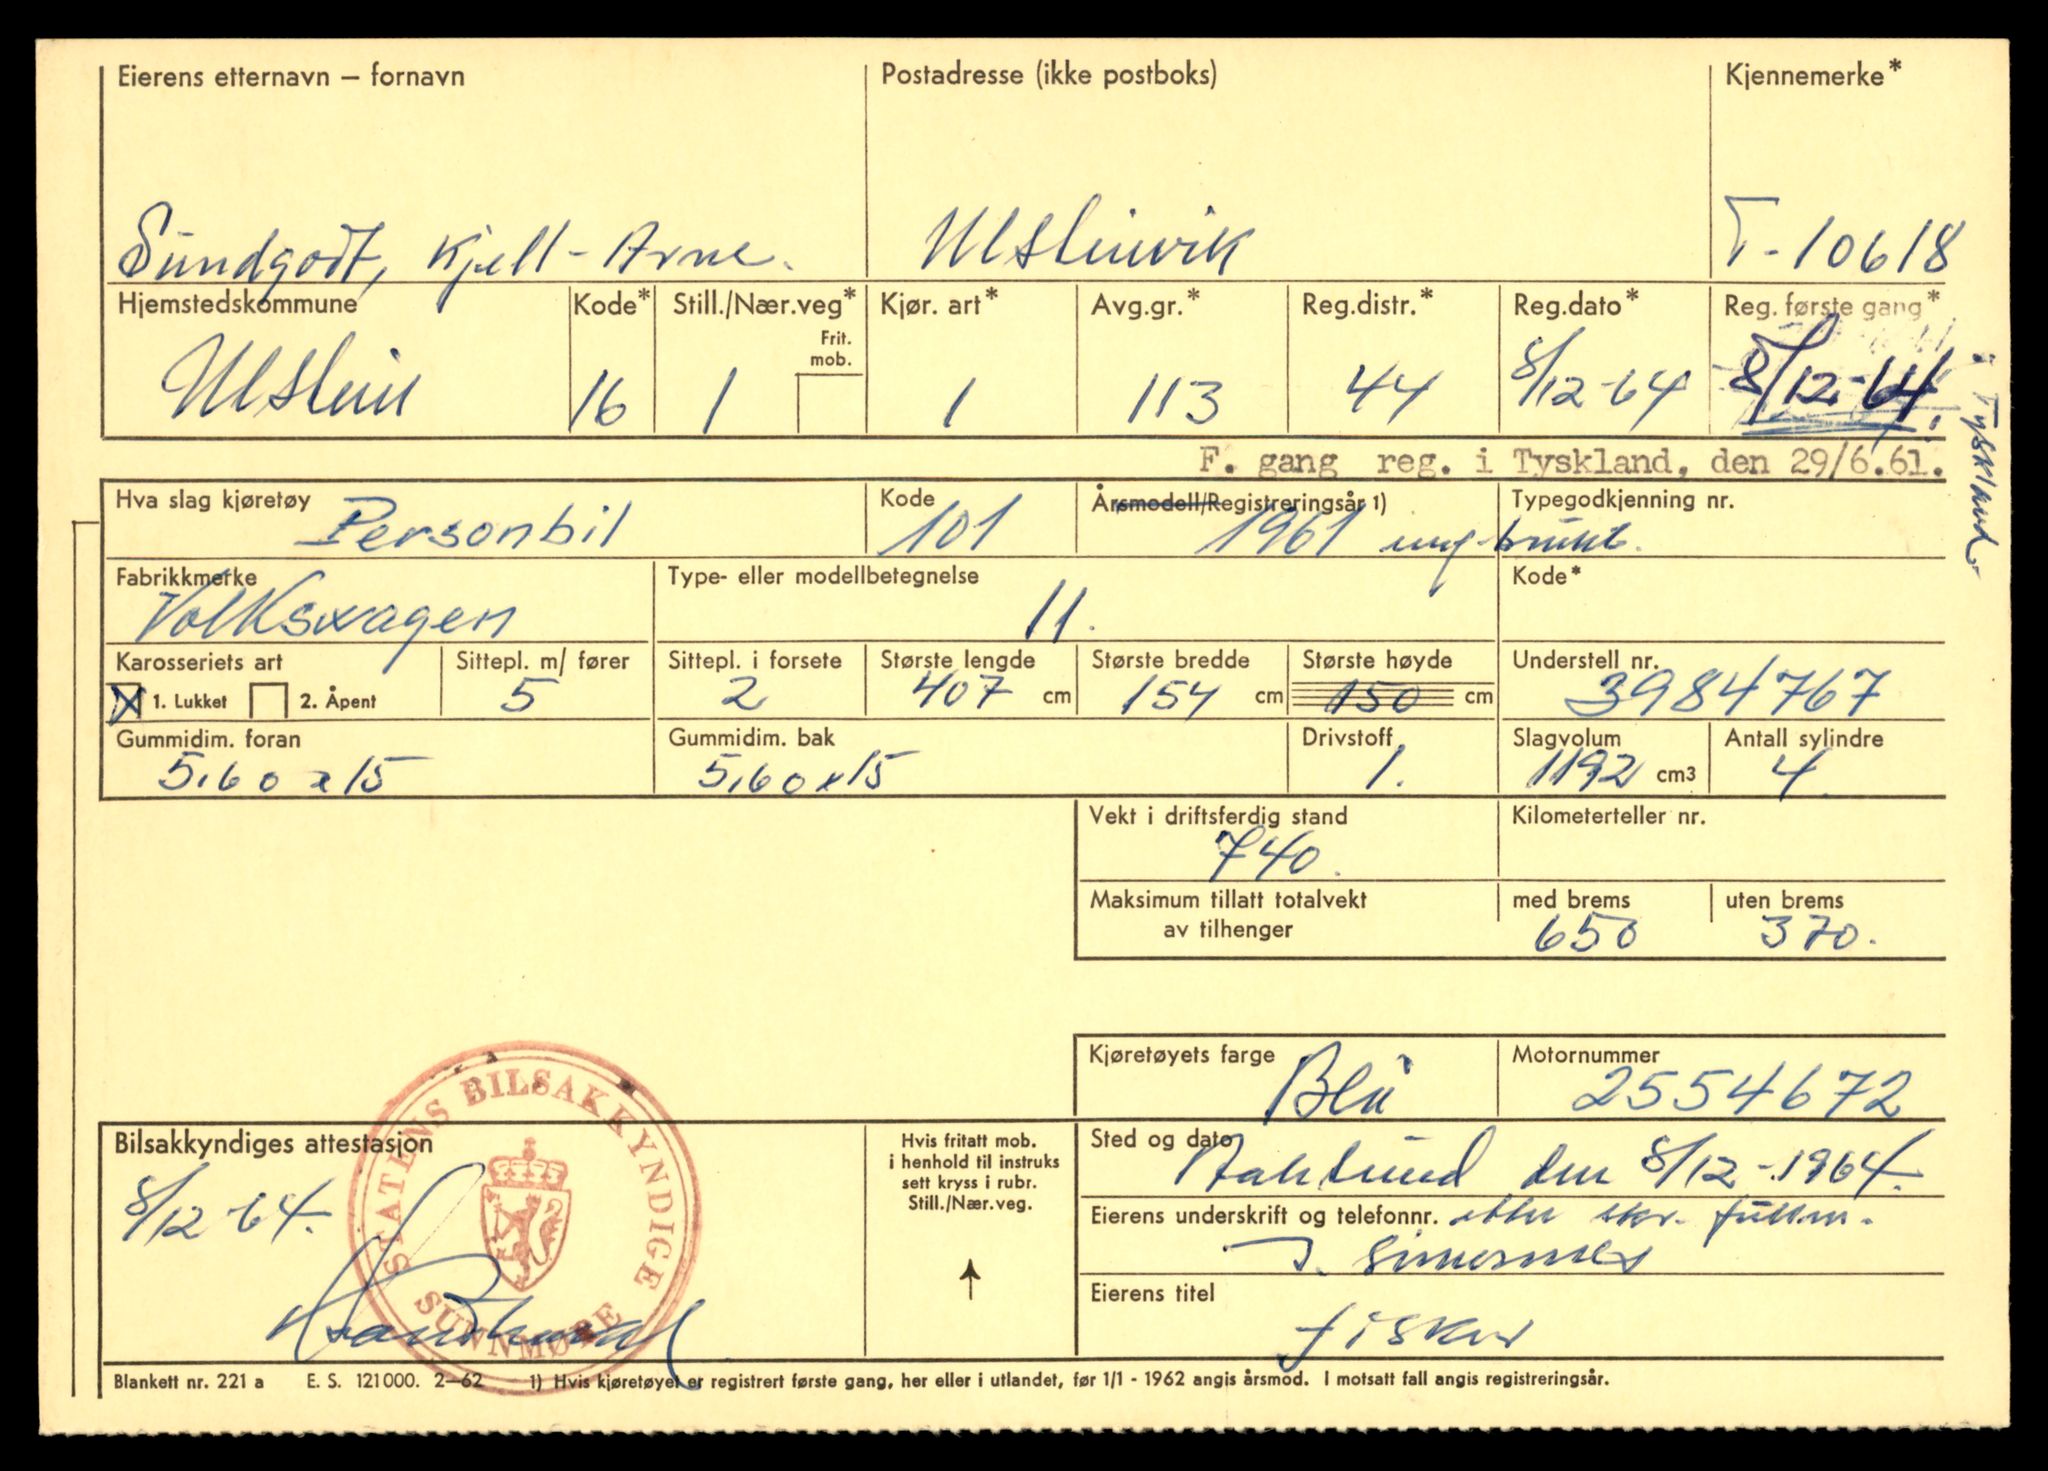 Eierens etternavn – fornavn Postadresse (ikke postboks) Kjennemerke*
Sundgodt, Kjell-Arne. Ulsteinvik T-10618
Hjemstedskommune Kode* Still./Nær.veg* Kjør. art* Avg.gr.* Reg.distr.* Reg.dato* Reg. første gang*
Frit. mob.
Ulstein 16 1 1 113 44 8/12-64 8/12-64.
i Tyskland
F. gang reg. i Tyskland, den 29/6.61.
Hva slag kjøretøy Kode Årsmodell/Registreringsår 1) Typegodkjenning nr.
Personbil 101 1961 brukt.
Fabrikkmerke Type- eller modellbetegnelse Kode*
Volkswagen 11.
Karosseriets art Sittepl. m/ fører Sittepl. i forsete Største lengde Største bredde Største høyde Understell nr.
X 1. Lukket 2. Åpent 5 2 407 cm 154 cm 150 cm 3984767
Gummidim. foran Gummidim. bak Drivstoff Slagvolum Antall sylindre
5,60 x 15 5,60 x 15 1. 1192 cm3 4.
Vekt i driftsferdig stand Kilometerteller nr.
740.
Maksimum tillatt totalvekt med brems uten brems
av tilhenger 650 370.
Kjøretøyets farge Motornummer
Blå 2554672
Bilsakkyndiges attestasjon
8/12-64.
STATENS BILSAKKYNDIGE
SUNNMØRE
Hvis fritatt mob.
i henhold til instruks
sett kryss i rubr.
Still./Nær.veg.
Sted og dato
den 8/12-1964.
Eierens underskrift og telefonnr. etter skr. fullm.
Eierens titel
fisker
Blankett nr. 221 a E. S. 121000. 2–62 1) Hvis kjøretøyet er registrert første gang, her eller i utlandet, før 1/1 - 1962 angis årsmod. I motsatt fall angis registreringsår.